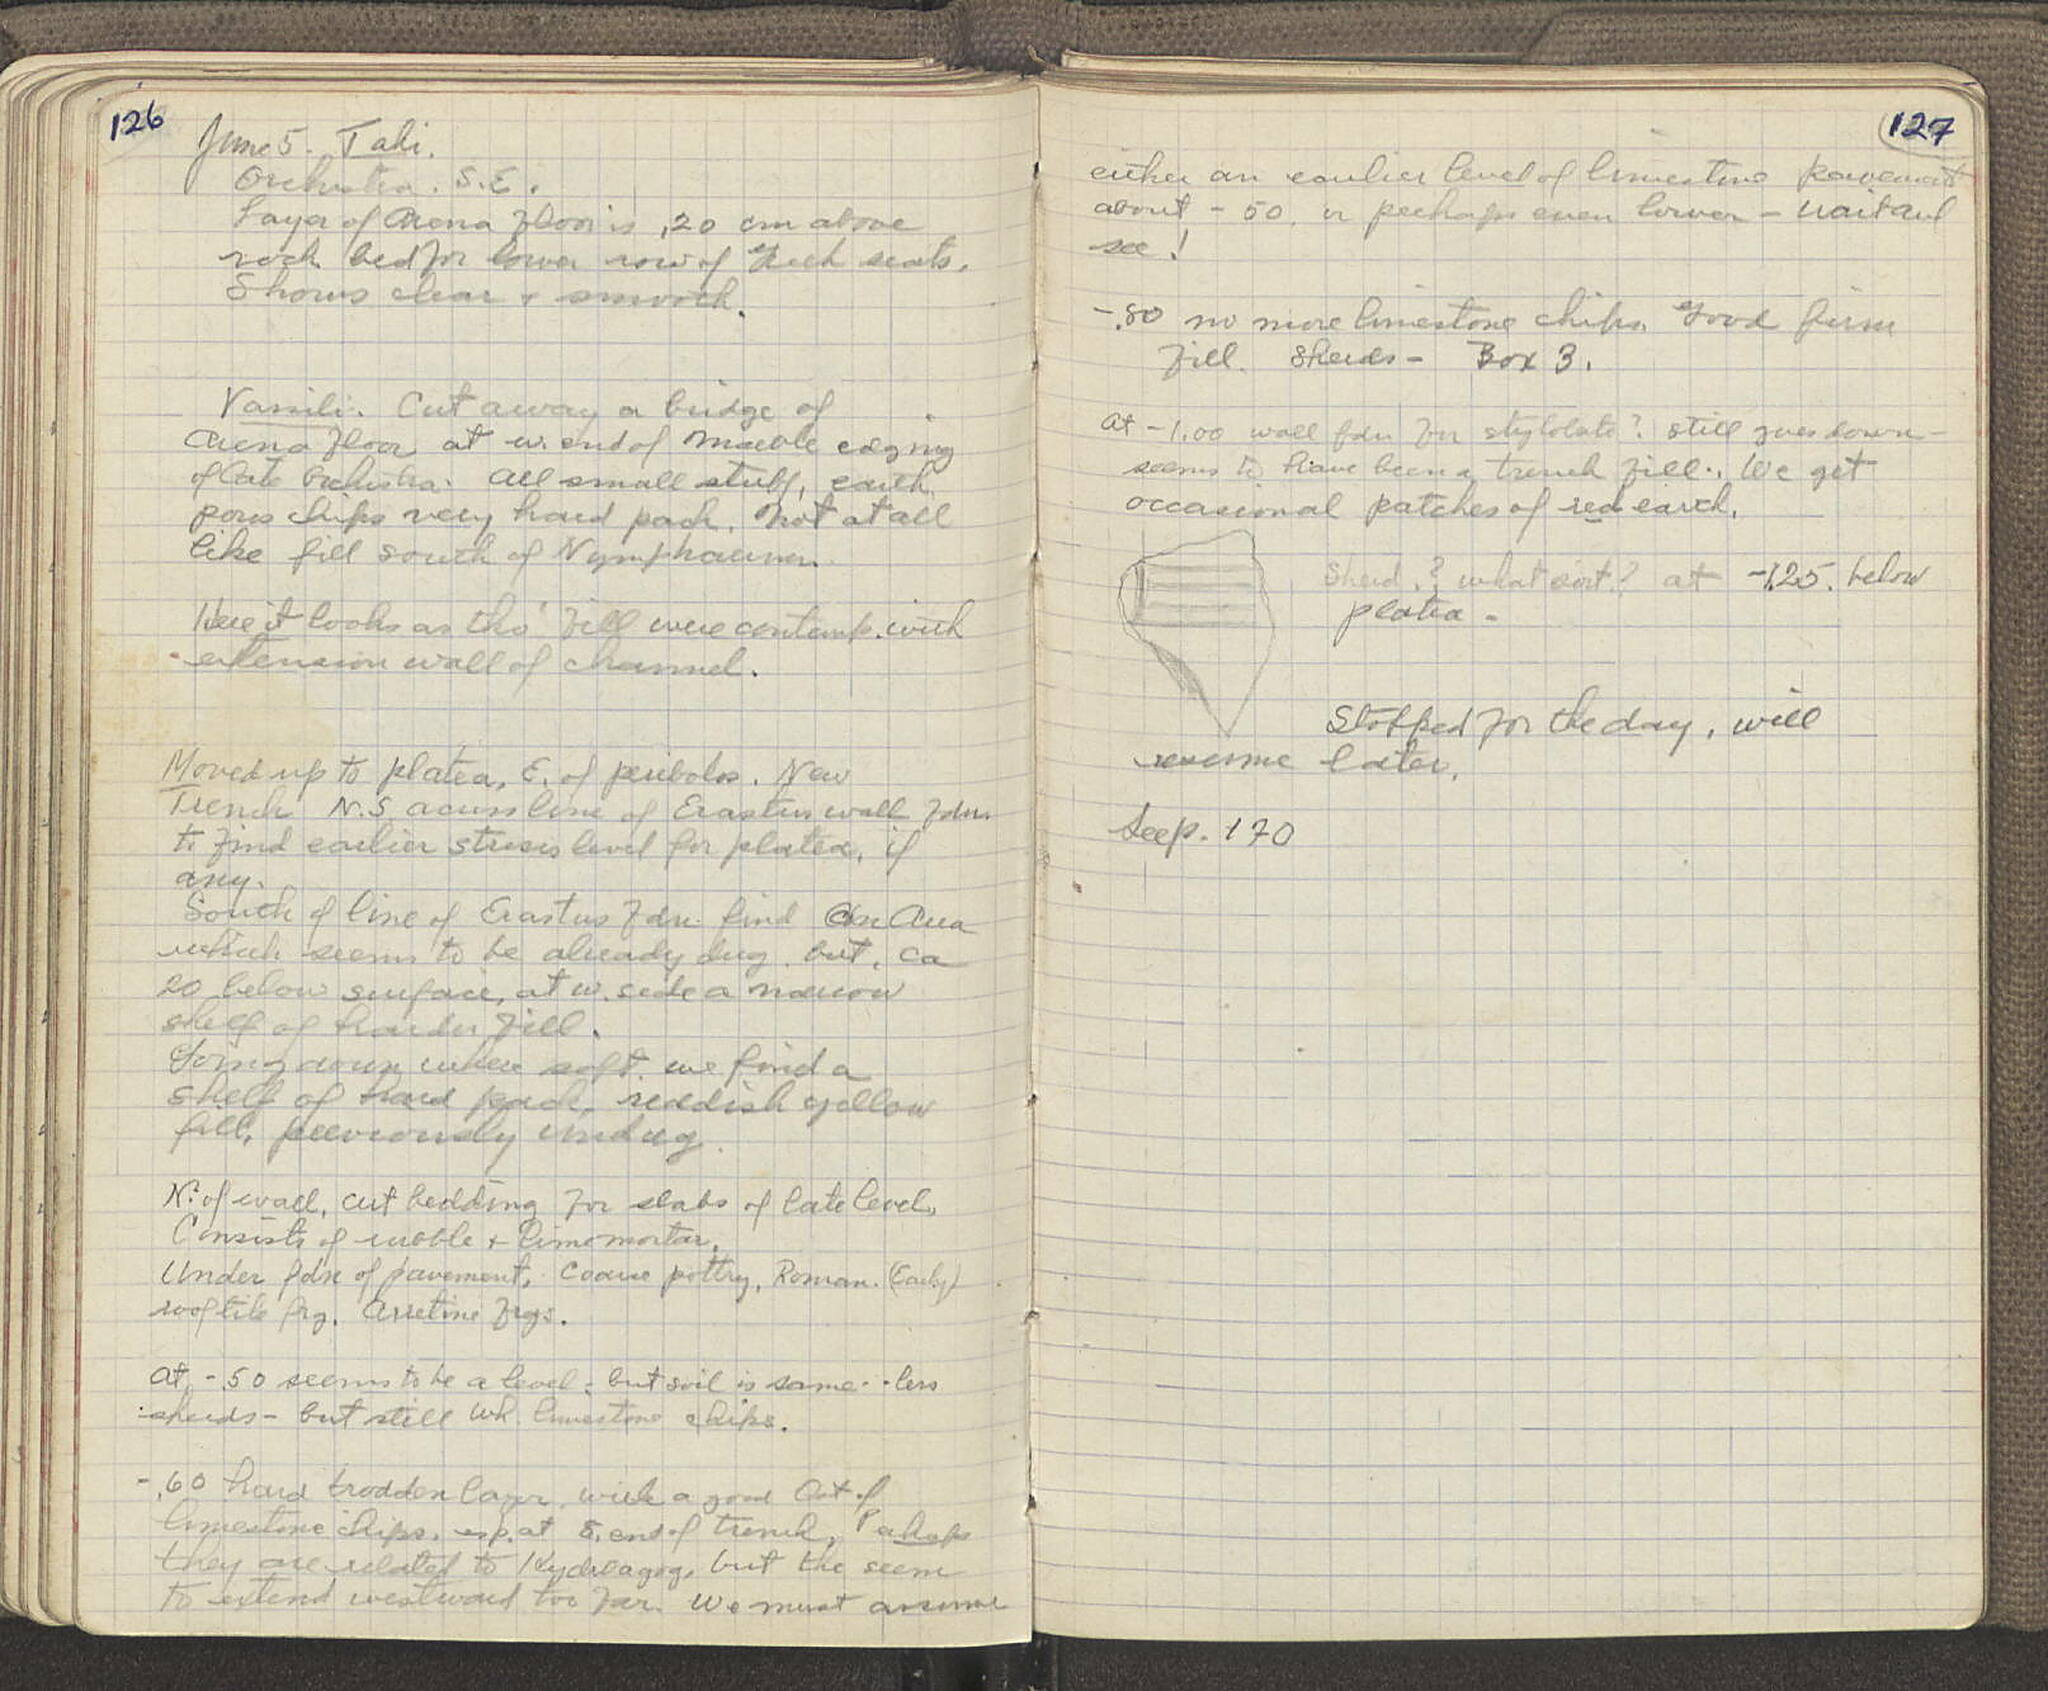 126
June 5. Taki.
Orchestra. S.E.
Layer of Arena floor is .20 cm above
rock bed for lower row of Greek seats.
Shows clear + smooth.
Vassili. Cut away a bridge of
Arena floor at w. end of marble edging
of late Orchestra. All small stuff, earth,
poros chips very hard pack. Not at all
like fill south of Nymphaeum.
Here it looks as tho' fill were contemp. with
extension wall of channel.
Moved up to platea, E. of peribolos. New
Trench N.S. across line of Erastus wall fdn.
to find earlier stosis level for platea, if
any.
South of line of Erastus fdn. find an area
which seems to be already dug. but, ca
20 below surface, at w. side a narrow
shelf of harder fill.
Going down where soft. we find a
shelf of hard pack, reddish yellow
fill, previously undug.
N. of wall, cut bedding for slabs of late level.
Consists of rubble + lime mortar.
Under fdn of pavement, coarse pottry, Roman. (Early)
rooftile frg. Arretine frgs.
At -.50 seems to be a level - but soil is same - less
sherds - but still wh. limestone chips.
-.60 hard trodden layer, with a good lot of
limestone chips. esp. at S. end of trench. Perhaps
they are related to Hydragog. but the seem
to extend westward too far. We must assume
127
either an earlier level of limestone pavement
about -50. or perhaps even lower - wait and
see!
-.80 no more limestone chips. Good firm
fill. Sherds - Box 3.
At -1.00 wall fdn for stylobate? still goes down -
seems to have been a trench fill. We get
occasional patches of red earth.
Sherd.? what sort? at -1.25. below
platea -
Stopped for the day, will
resume later.
See p. 170